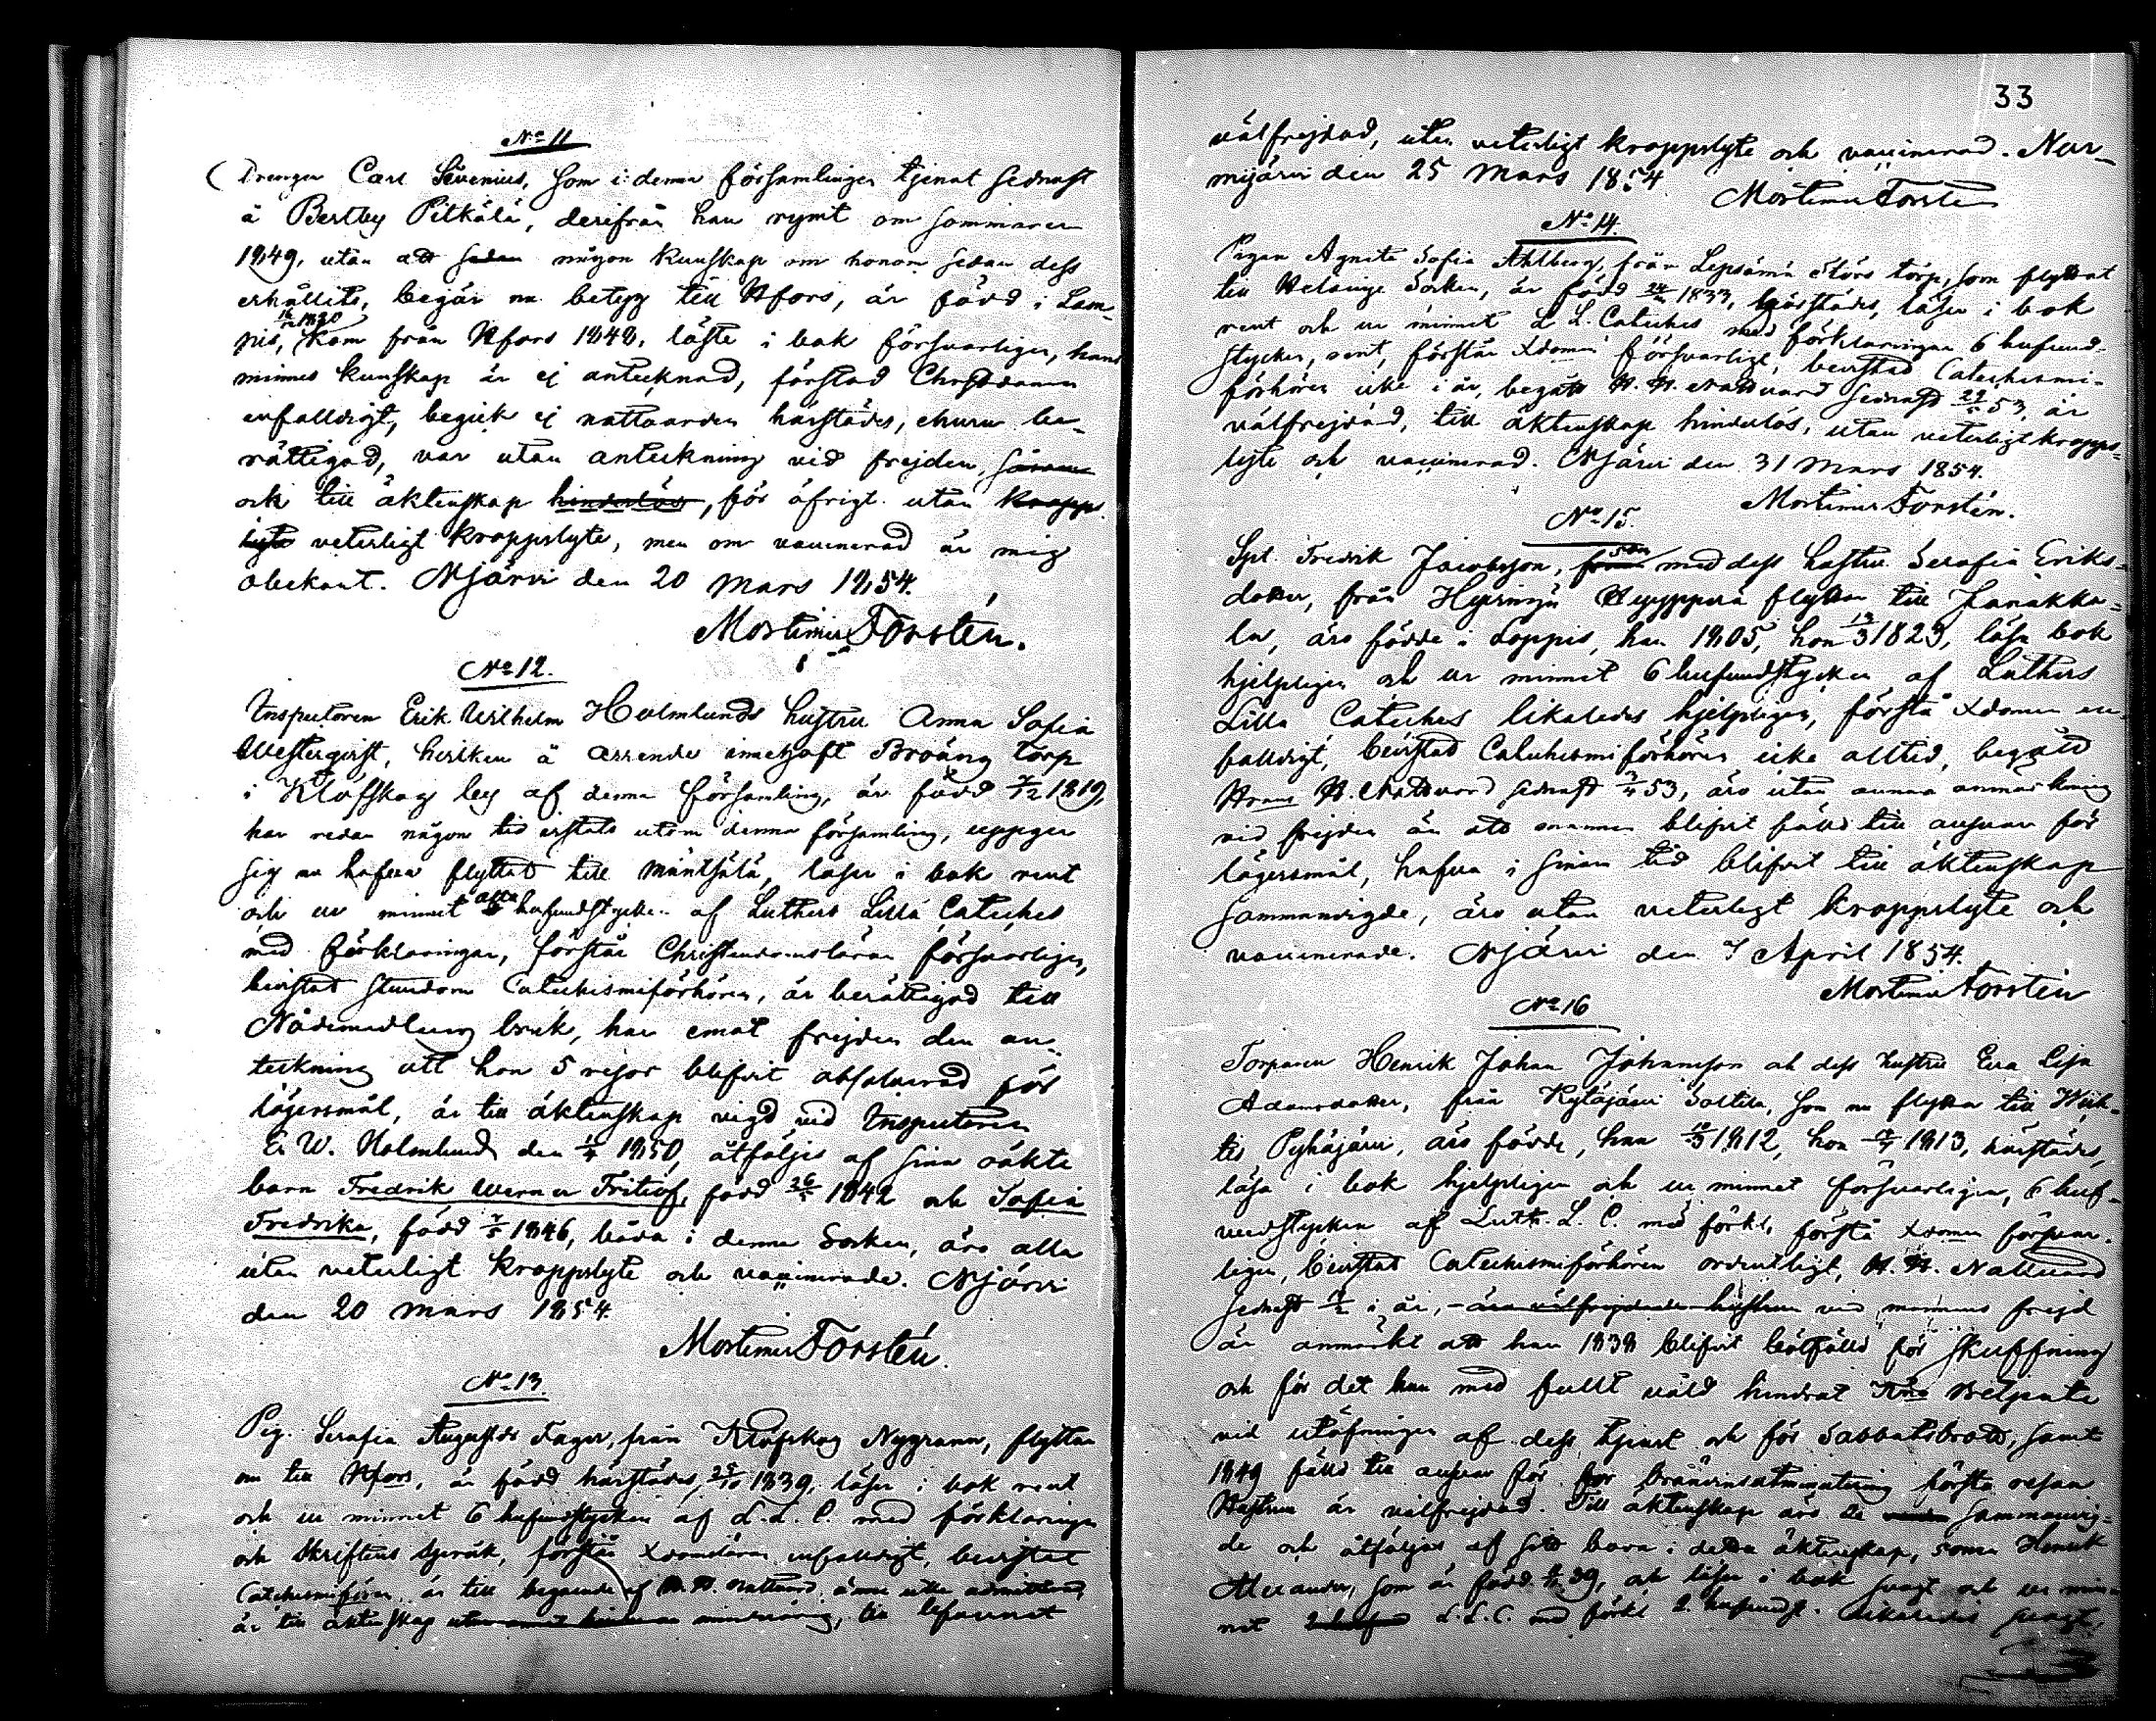 No 11
Drengen Carl Sevenius, som i denna församlingen tjenat sednast
å Bertby Pitkälä, derifrån han rymt om sommaren
1849, utan att sedan någon kunskap om honom sedan dess
erhållits, begär nu betyg till Hfors, är född i Lam-
pis, 1820 kom från Hfors 1848, läste i bok försvarligen, hans
minnes kunskap är ej antecknad, förstod Christdomen
enfalldigt, begick ej nattvarden härstädes, ehuru be-
rättigad, var utan anteckning vid frejden,
och till äktenskap hinderlös, för öfrigt utan kropps
lyte veterligt kroppslyte, men om vaccinerad är mig
obekant. Njärvi den 20 Mars 1854.
Mortimer Forstén.
No 12.
Inspectoren Erik Wilhelm Holmlunds hustru Anna Sofia
Westerqvist, hvilken å arrende innehaft Broäng torp
i Klofskog by af denna församling, är född 1819,
har redan någon tid vistats utom denna församling, uppger
sig nu hafva flyttat till Mäntsälä, läser i bok rent
och ur minnet alla hufvudstycken af Luthers Lilla Cateches
med förklaringen, förstår Christendomsläran försvarligen,
bevistat stundom Catechismiförhören, är berättigad till
Nådemedlens bruk, har emot frejden den an-
teckning att hon 5 resor blifvit absolverad för
lägersmål, är till äktenskap vigd vid Inspectoren
E. W. Holmlund den 1850, åtföljes af sina oäkta
barn Fredrik Werner Fritiof, född 26 1842 och Sofia
Fredrika, född 1846, båda i denna Socken, äro alla
utan veterligt kroppslyte och vaccinerade. Njärvi
den 20 Mars 1854.
Mortimer Forstén.
No 13.
Pig. Serafia Augusta Fager, från Klofskog Nygrann, flyttar
nu till Hfors, är född härstädes, 1839, läser i bok rent
och ur minnet 6 hufvudstycken af L. L. C. med förklaringen
och skriftens språk, förstår Xdomsläran enfalldigt, bevistat
Catechismiförhören, är till begående af H. H. Nattvard ännu icke admitterad,
är till äktenskap minderårig, till lefvernet
33
välfrejdad, utan veterligt kroppslyte och vaccinerad. Nur-
mijärvi den 25 Mars 1854
Mortimer Forstén
No 14.
Pigan Agnita Sofia Ahlberg, från Lepsämä Störs torp, som flyttat
till Helsinge Socken, är född 24 1833, härstädes, läser i bok
rent och ur minnet L. L. Cateches med förklaringen 6 hufvud-
stycken, rent, förstår Xdomen försvarligt, bevistad Catechismi-
förhören icke i år, begått H. H. Nattvard sednast 53, är
välfrejdad, till äktenskap hinderlös, utan veterligt kropps-
lyte och vaccinerad. Njärvi den 31 Mars 1854.
Mortimer Forstén.
No 15.
Spl. Fredrik Jacobsson, som med dess hustru Serafia Eriks-
dotter, från flyttar till Janakka-
la, äro födde i Loppis, han 1805, hon 1823, läsa bok
hjelpligen och ur minnet 6 hufvudstycken af Luthers
Lilla Cateches likaledes hjelpligen, förstå Xdomen en-
falldigt, bevistad Catechismiförhören icke alltid, begått
H. Nattvard sednast 53, äro utan annan anmärkning
vid frejden än att mannen blifvit fälld till ansvar för
lägersmål, hafva i sinom tid blifvit till äktenskap
sammanvigde, äro utan veterligt kroppslyte och
vaccinerade. Njärvi den 7 April 1854.
Mortimer Forstén
No 16
Torparen Henrik Johan Johansson och dess hustru Eva Lisa
Adamsdotter, från Kytäjärvi Soltila, som nu flyttar till Wich-
tis Pyhäjärvi, äro födde, han 1812, hon 1813, härstädes,
läsa i bok hjelpligen och ur minnet försvarligen, 6 huf-
vudstycken af Luth. L. C. med förkl. förstå Xdomen försvar-
ligen, bevistat Catechismiförhören ordentligt, H. H. Nattvard
sednast i år, äro välfrejdade hustrun vid mannens frejd
är anmärkt att han 1838 blifvit bötfälld för skuffning
och för det han med fullt våld hindrat Kno Betjente
vid utöfningen af dess tjenst och för Sabbatsbrott, samt
1849 fälld till ansvar för för bränvinsutminutering första resan
Hustrun är välfrejdad. Till äktenskap äro de sammanvig-
de och åtföljas af sitt barn i detta äktenskap, sonen Henrik
Alexander, som är född 39, och läser i bok svagt och ur min-
net L. L. C. med förkl. 2 hufvudst. likaledes svagt,